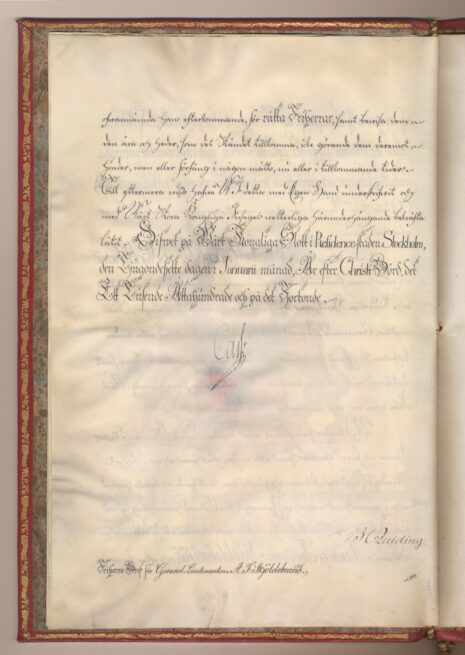 framnämnda hans efterkommande, för rätta Friherrar, samt bevisa dem
den ära och heder, som det Ståndet tillkomma, icke görande dem deremot
hinder, men eller förfång i någon måtto, nu eller i tillkommande tider.
Till yttermera visso hafve Wi detta med Egen Hand underskrifvit och
med Wårt Stora Kongliga Insegel vetterliga härunderhängande bekräfta
låtit. Gifwet på Wårt Kongliga Slott i Residence-staden Stockholm,
den dagen i Januarii månad, År efter Christi Börd, det
Ett Tusende Attahundrade och på det Fjortonde.
Carl
Friherre Bref för General Lieutenanten A. F. Skjöldebrand.